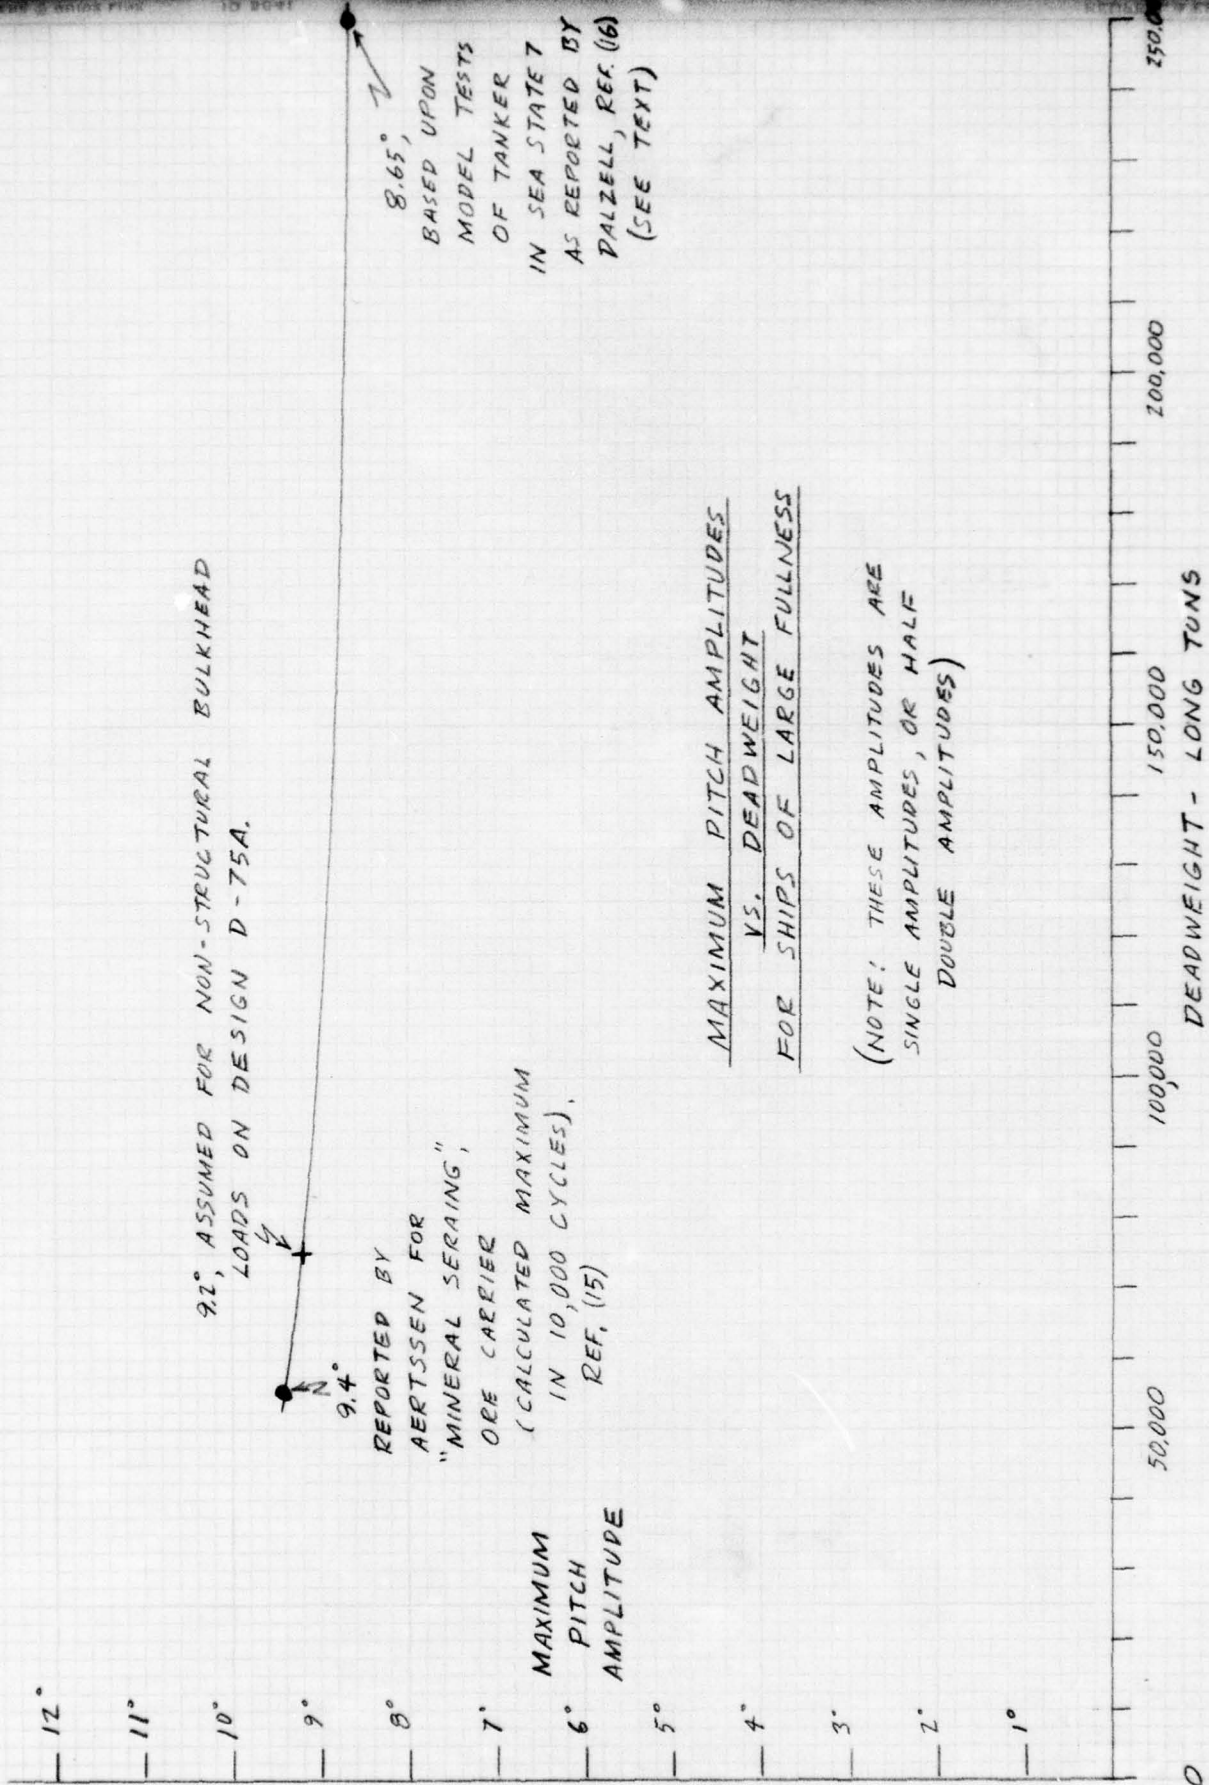 12°
11°
10°
9°
8°
7°
6°
5°
4°
3°
2°
1°
0
MAXIMUM
PITCH
AMPLITUDE
9.2°, ASSUMED FOR NON-STRUCTURAL BULKHEAD
LOADS ON DESIGN D-75A.
9.4°
REPORTED BY
AERTSSEN FOR
"MINERAL SERAING",
ORE CARRIER
(CALCULATED MAXIMUM
IN 10,000 CYCLES).
REF. (15)
8.65°,
BASED UPON
MODEL TESTS
OF TANKER
IN SEA STATE 7
AS REPORTED BY
DALZELL, REF. (16)
(SEE TEXT)
MAXIMUM PITCH AMPLITUDES
VS. DEADWEIGHT
FOR SHIPS OF LARGE FULLNESS
(NOTE: THESE AMPLITUDES ARE
SINGLE AMPLITUDES, OR HALF
DOUBLE AMPLITUDES)
50,000
100,000
150,000
200,000
250,0
DEADWEIGHT - LONG TONS